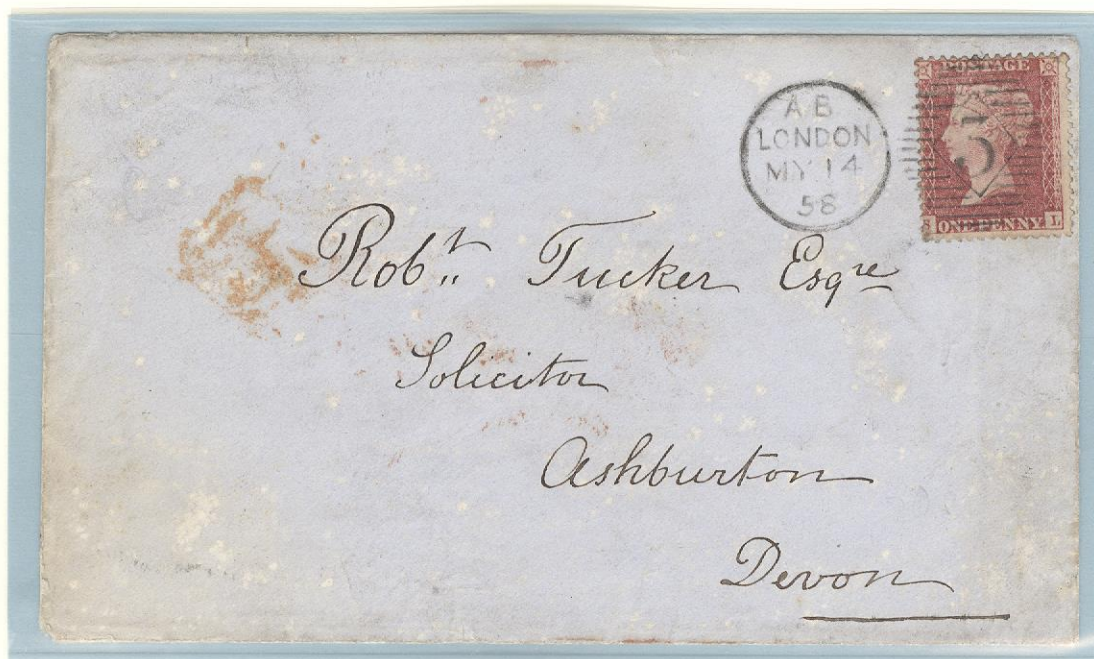 A B
LONDON
MY 14
58
POSTAGE
5
ONE PENNY
L
Robt. Tucker Esqre
Solicitor
Ashburton
Devon